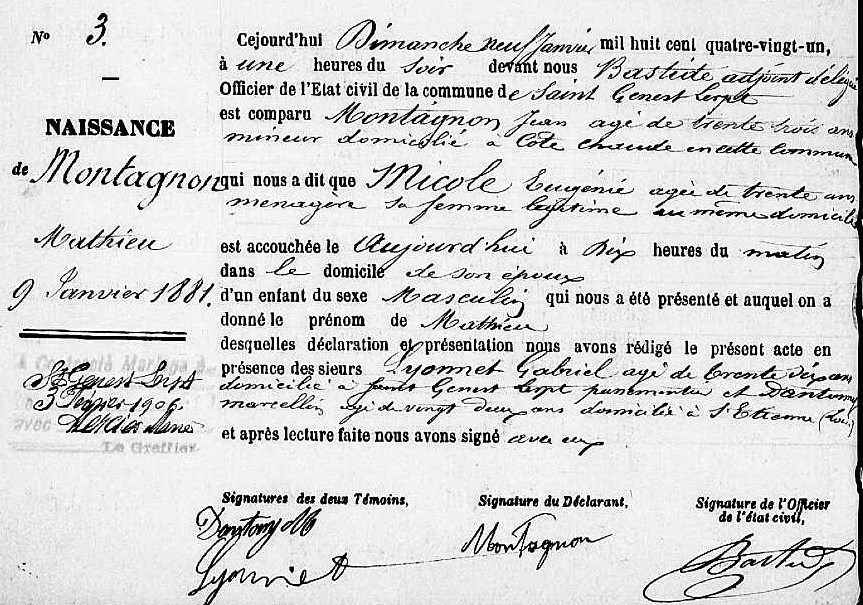 No 3.
NAISSANCE
de Montagnon
Mathieu
9 Janvier 1881.
A Contracté Mariage à
St Genest Lerpt
3 Février 1906
avec
Le Greffier
Cejourd'hui Dimanche neuf Janvier mil huit cent quatre-vingt-un,
à une heures du soir devant nous Bastide adjoint délégué
Officier de l'Etat civil de la commune de Saint Genest Lerpt
est comparu Montagnon Jean agé de trente trois ans
mineur domicilié à Cote chaude en cette commune
qui nous a dit que Micole Eugénie agée de trente ans
menagère sa femme legitime au même domicile
est accouchée le Aujourd'hui à Dix heures du matin
dans le domicile de son époux
d'un enfant du sexe Masculin qui nous a été présenté et auquel on a
donné le prénom de Mathieu
desquelles déclaration et présentation nous avons rédigé le présent acte en
présence des sieurs Lyonnet Gabriel agé de trente six ans
domicilié à Saint Genest Lerpt et Dantony
marcellin agé de vingt deux ans domicilié à St Etienne (Loire)
et après lecture faite nous avons signé avec eux
Signatures des deux Témoins,
Signature du Déclarant,
Signature de l'Officier
de l'état civil,
Dantony M
Lyonnet
Montagnon
Bastide